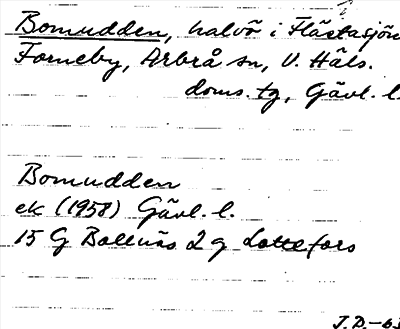 Bomudden, halvö i Flästasjön
Forneby, Arbrå sn, V. Häls.
doms. tg, Gävl. l.
Bomudden
ek (1958) Gävl. l.
15 G Bollnäs 2 g Lottefors
J.D.-63